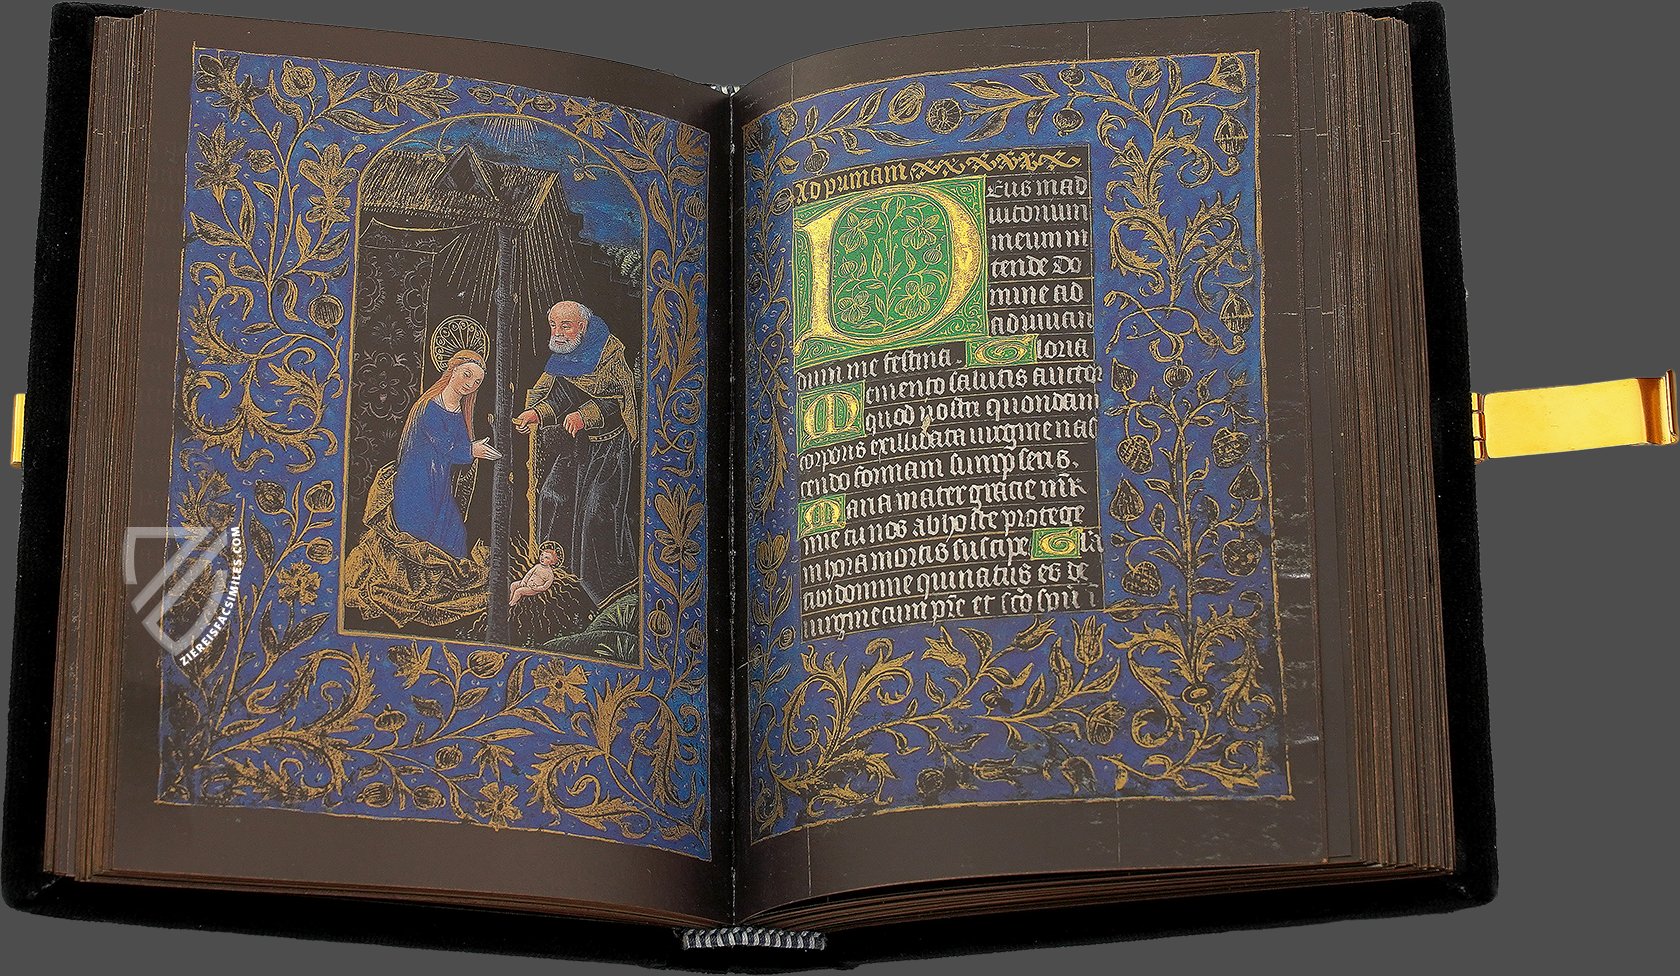 ZIEREISFACSIMILES.COM
Ad primam
Deus in ad
iutorium
meum in
tende Do
mine ad
adiuuan
dum me festina. Gloria
Memento salutis auctor
quod nostri quondam
corporis ex illibata uirgine nas
cendo formam sumpseris.
Maria mater gracie
me tu nos ab hoste protege
in hora mortis suscipe Gla
tibi domine qui natus es de
uirgine cum pre et sco spu i